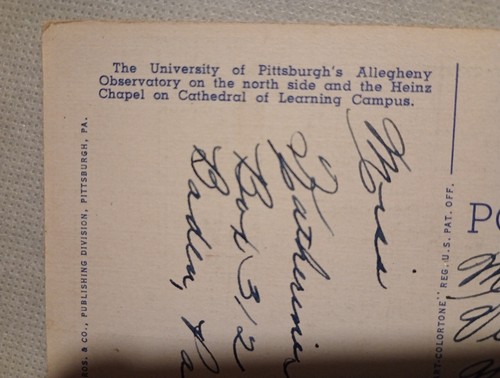 The University of Pittsburgh's Allegheny
Observatory on the north side and the Heinz
Chapel on Cathedral of Learning Campus.
Miss
Katherine
Box 312
Baden, Pa
ROS. & CO., PUBLISHING DIVISION, PITTSBURGH, PA.
ART-COLORTONE" REG. U.S. PAT. OFF.
PO